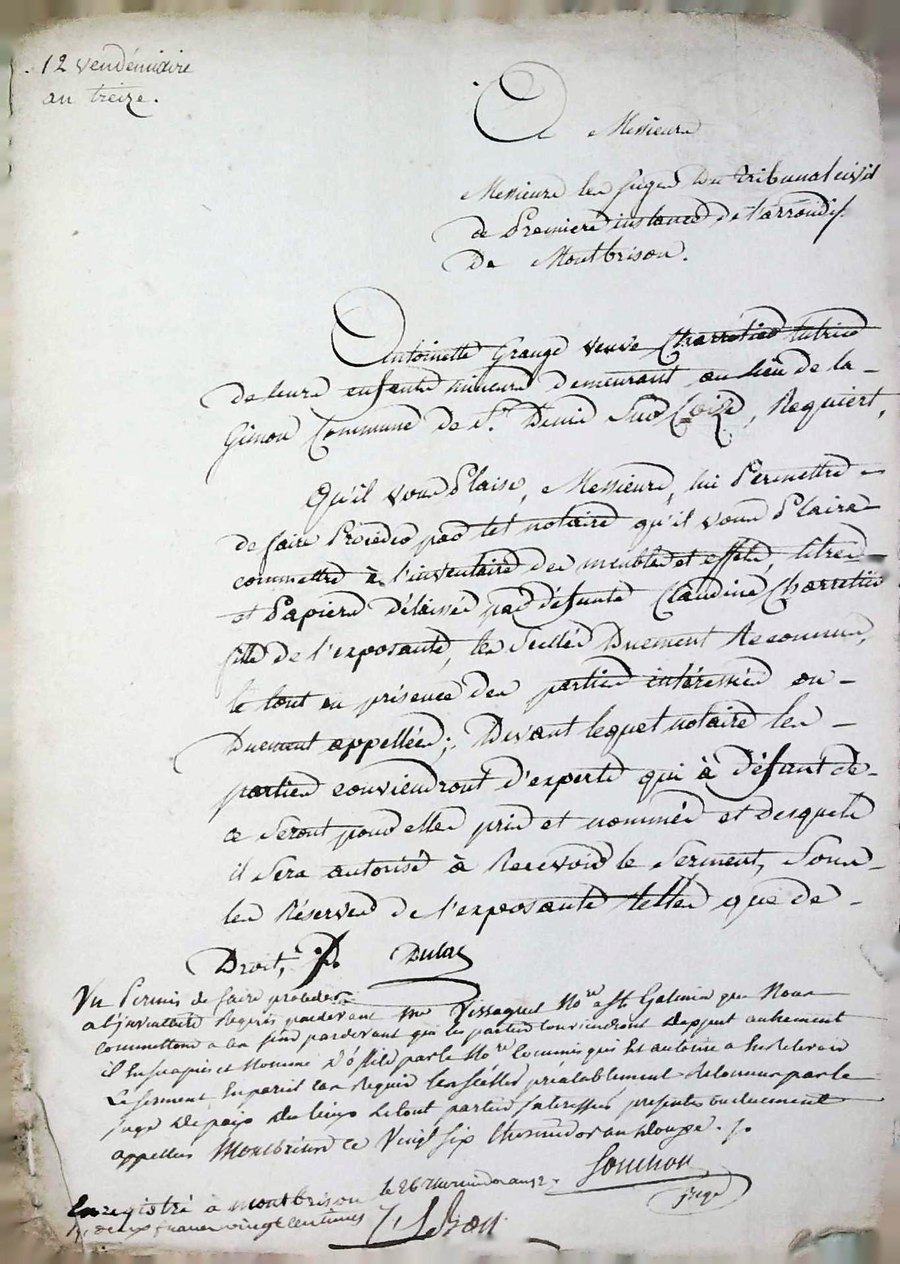 12 vendémiaire
an treize.
A Messieurs
Messieurs les juges du tribunal civil
de Premiere instance de l'arrondis.
De Montbrison.
Antoinette Grange veuve Charretier tutrice
de leurs enfants mineurs demeurant au lieu de la
Gimon Commune de St. Denis Sur Coise, Requiert,
Qu'il vous Plaise, Messieurs, lui Permettre
de faire Procéder par tel notaire qu'il vous Plaira
commettre à l'inventaire des meubles et effets, titres
et Papiers délaissés par défunte Claudine Charretier
fille de l'exposante, les Scellés Duement Reconnus,
le tout en présence des parties intéressées ou
Duement appellées; Devant lequel notaire les
parties conviendront d'experts qui à défaut de
ce Seront pour elles pris et nommés et desquels
il Sera autorisé à Recevoir le Serment, Sous
les Réserves de l'exposante telles que de
Droit, Dulac
Vu Permis de faire proceder
a l'inventaire Requis pardevant me Vissaguet Nore a St Galmier que Nous
Commettons a ces fins pardevant qui les parties Conviendront d'expert autrement
il En sera pris et Nommé d'office par le Nore Commis qui Est autorisé a En Recevoir
Le serment, En pareil Cas Requis les scellés préalablement Reconnus par le
juge de paix du lieu Le tout parties Interessées presentes ou duement
appellées Montbrison ce Vingt six thermidor an douze.
Souchon
juge
Enregistré à Montbrison le 26 thermidor an 12
deux francs vingt centimes